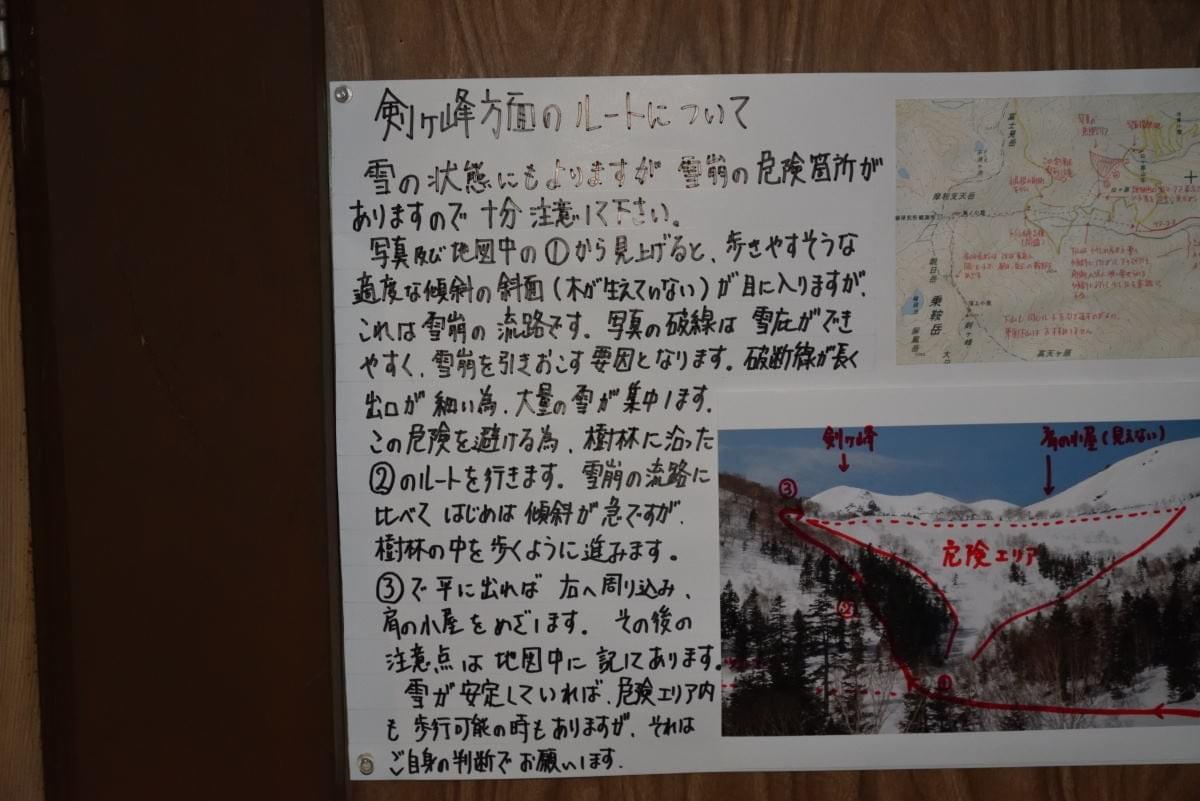 剣ヶ峰方面のルートについて
雪の状態にもよりますが 雪崩の危険箇所が
ありますので 十分注意して下さい。
写真及び地図中の①から見上げると、歩きやすそうな
適度な傾斜の斜面(木が生えていない)が目に入りますが、
これは雪崩の流路です。写真の破線は雪庇ができ
やすく、雪崩を引きおこす要因となります。破断線が長く
出口が細い為、大量の雪が集中します。
この危険を避ける為、樹林に沿った
②のルートを行きます。雪崩の流路に
比べて はじめは傾斜が急ですが、
樹林の中を歩くように進みます。
③で平に出れば 右へ周り込み、
肩の小屋をめざします。その後の
注意点は地図中に記してあります。
雪が安定していれば、危険エリア内
も歩行可能の時もありますが、それは
ご自身の判断でお願いします。
富士見岳
摩利支天岳
朝日岳
乗鞍岳
剣ヶ峰
屏風岳
高天ヶ原
剣ヶ峰
肩の小屋(見えない)
③
危険エリア
②
①